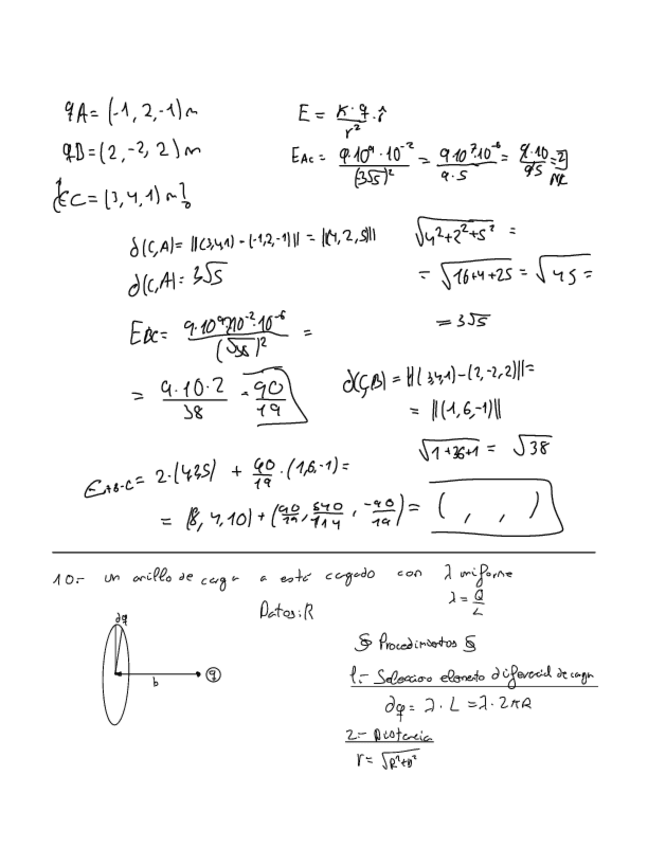 qA = (-1, 2, -1) m
qB = (2, -2, 2) m
¿EC = (3, 4, 1) m?
E = K·q·r̂ / r²
EAC = 9·10⁹·10⁻² / (3√5)² = 9·10⁷·10⁻⁶ / 9·5 = 9·10 / 45 = 2
d(C,A) = ||(3,4,1) - (-1,2,-1)|| = ||(4, 2, 5)||
√4²+2²+5² =
d(C,A) = 3√5
= √16+4+25 = √45 =
= 3√5
EBC = / (√38)² =
d(C,B) = ||(3,4,1) - (2,-2,2)|| =
= 9·10·2 / 38 = 90 / 19
= ||(1, 6, -1)||
√1+36+1 = √38
EA+B-C = 2·(4,2,5) + 90/19 · (1,6,-1) =
= (8, 4, 10) + (90/19, 540/114, -90/19) = ( , , )
10.- un anillo de carga a está cargado con λ uniforme
λ = Q/L
Datos: R
dq
b
q
§ Procedimientos §
1.- Selecciono elemento diferencial de carga
dq = λ · L = λ · 2πR
2.- Distancia
r = √R²+b²